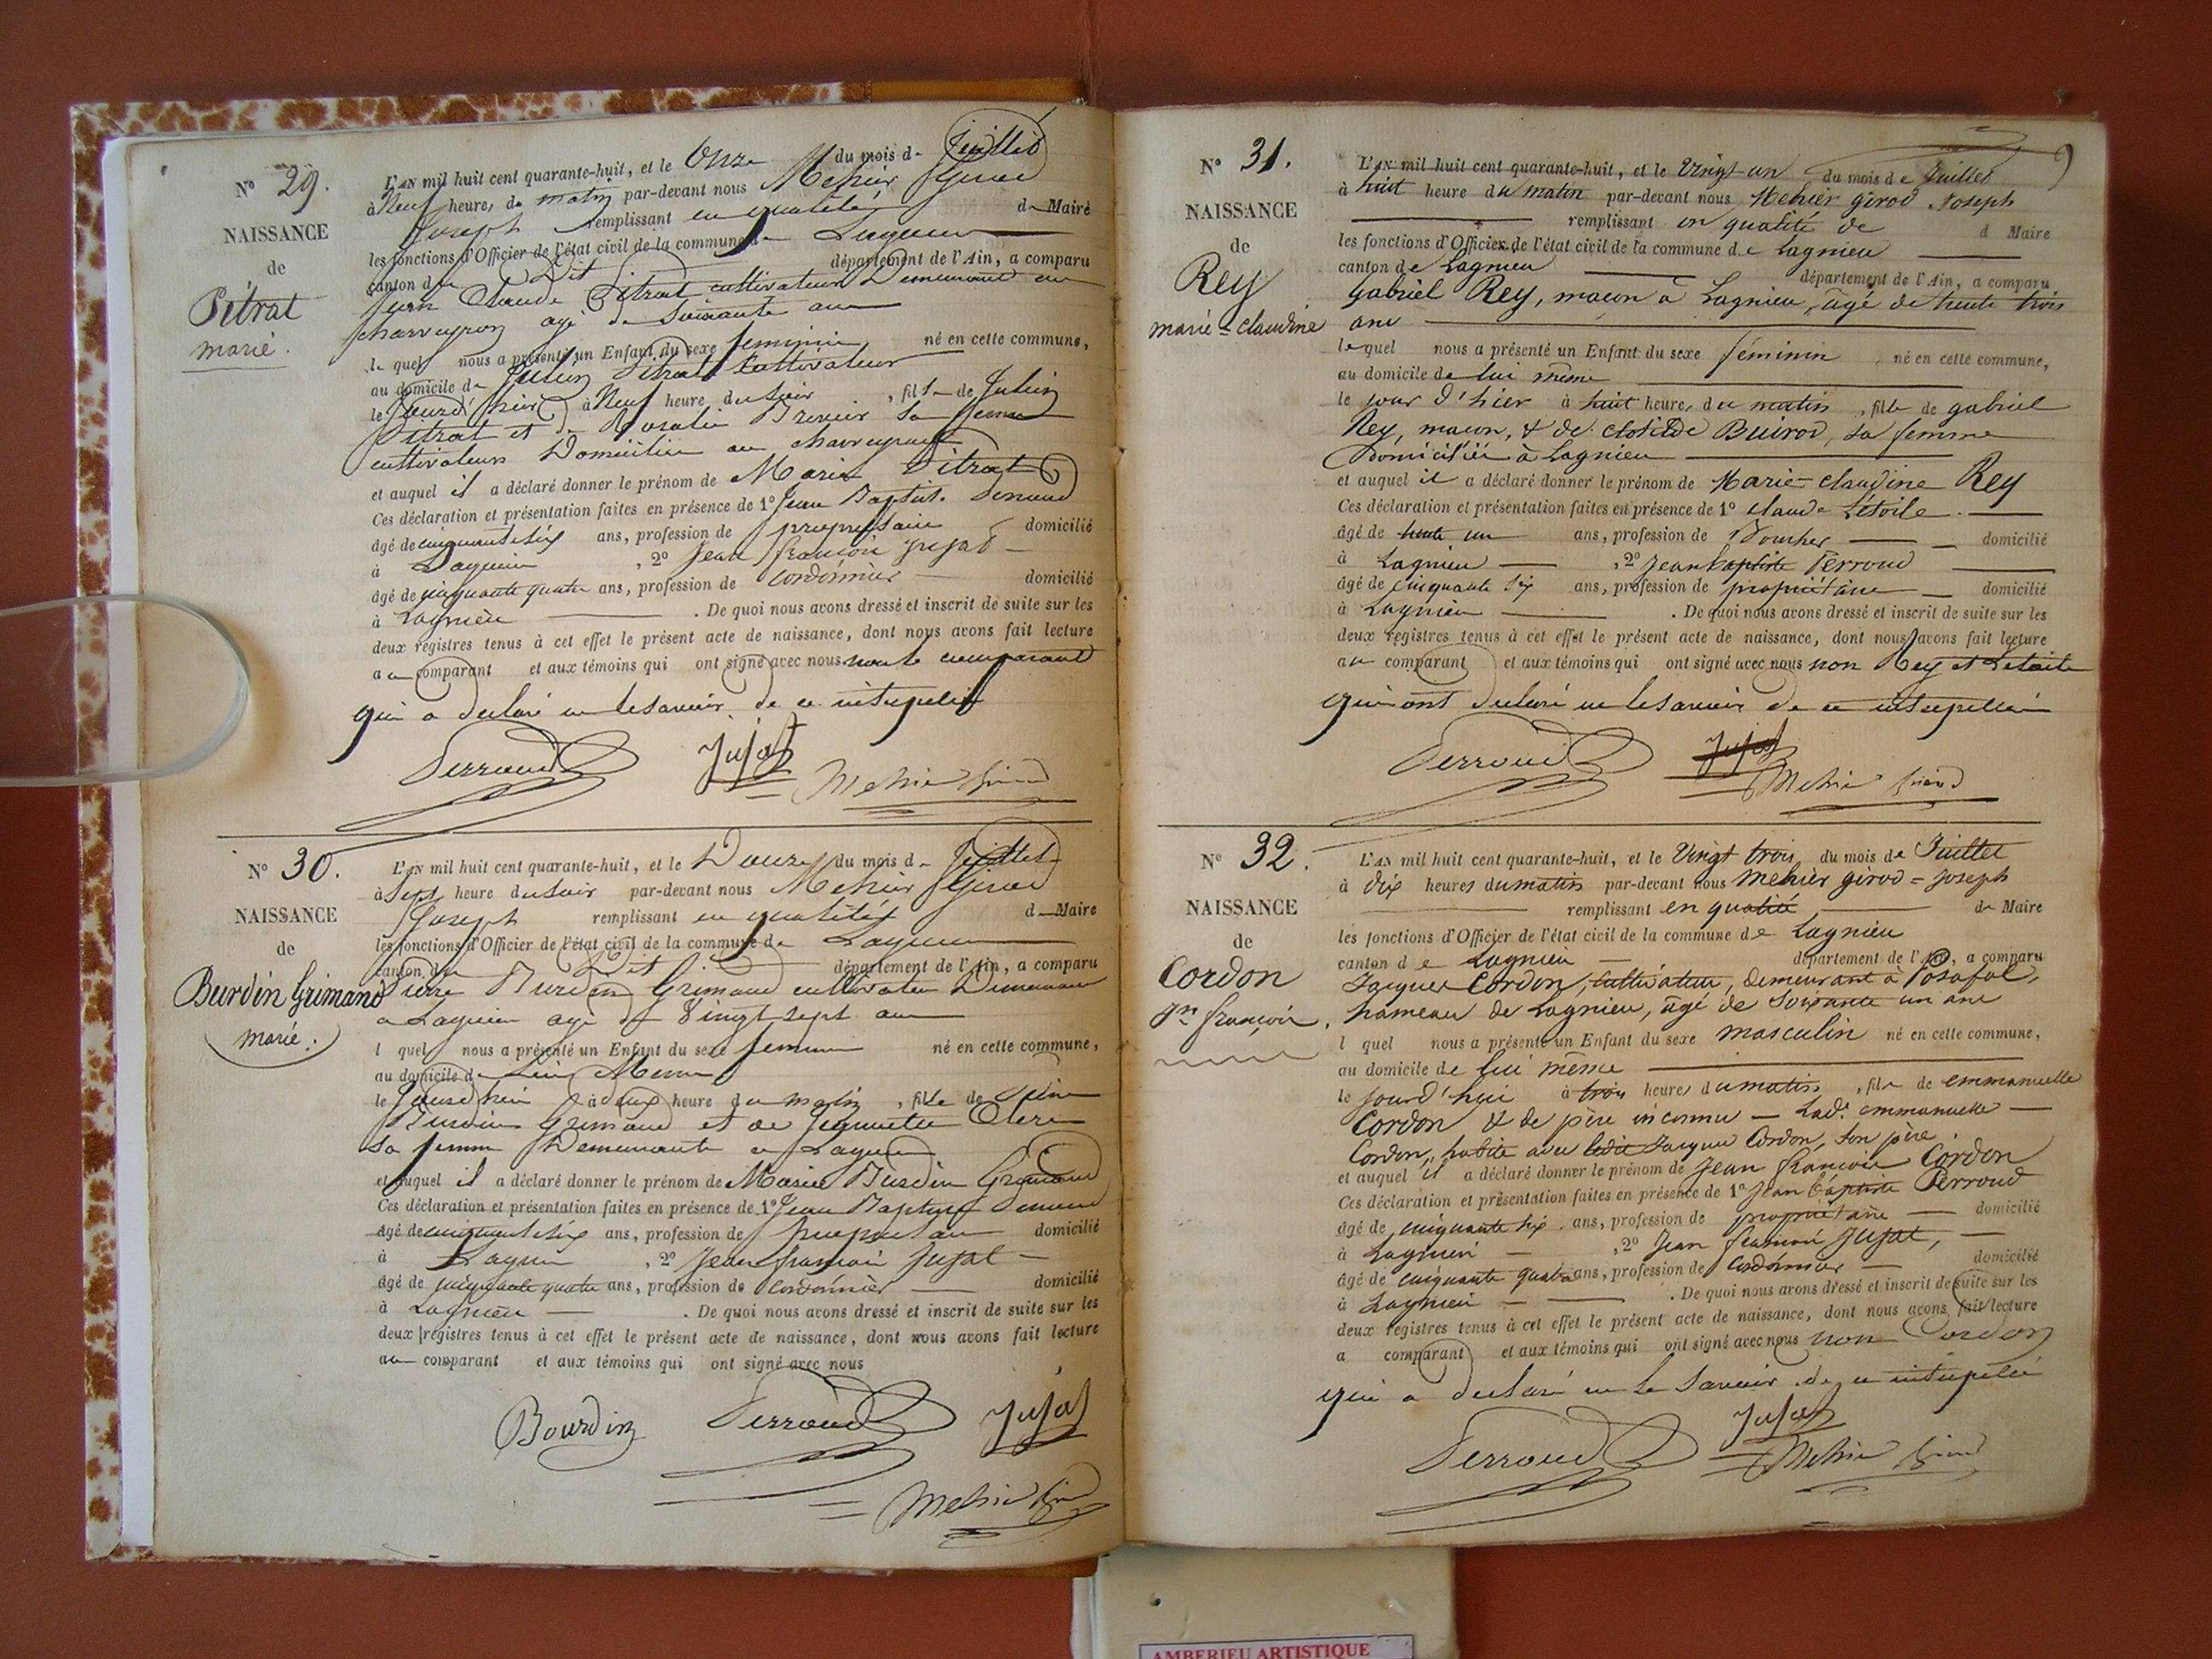 N° 29.
NAISSANCE
de
Pétrat
marié.
L'AN mil huit cent quarante-huit, et le Onze du mois de Juillet
à Neuf heure, du matin par-devant nous Mehier Girod
Joseph remplissant en qualité de Maire
les fonctions d'Officier de l'état civil de la commune de Lagnieu
canton du Dit département de l'Ain, a comparu
Jean Claude Pitrat cultivateur Demeurant au
Charveyron agé de Soixante ans
le quel nous a présenté un Enfant du sexe feminin né en cette commune,
au domicile de Julien Pitrat Cultivateur
le jour d'hier à Neuf heure du soir, fille de Julien
Pitrat et de Rosalie sa femme
cultivateurs Domiciliés au Charveyron
et auquel il a déclaré donner le prénom de Marie Pitrat
Ces déclaration et présentation faites en présence de 1° Jean Baptiste Perroud
âgé de cinquante six ans, profession de propriétaire domicilié
à Lagnieu, 2° Jean françois Jujat
âgé de cinquante quatre ans, profession de cordonnier domicilié
à Lagnieu. De quoi nous avons dressé et inscrit de suite sur les
deux registres tenus à cet effet le présent acte de naissance, dont nous avons fait lecture
au comparant et aux témoins qui ont signé avec nous non le comparant
qui a declaré ne le savoir de ce interpellé
Perroud Jujat
Mehier Girod
N° 30.
NAISSANCE
de
Burdin Grimand
marié.
L'AN mil huit cent quarante-huit, et le Douze du mois de Juillet
à Sept heure du soir par-devant nous Mehier Girod
Joseph remplissant en qualité de Maire
les fonctions d'Officier de l'état civil de la commune de Lagnieu
canton du Dit département de l'Ain, a comparu
Pierre Burdin Grimand cultivateur Demeurant
a Lagnieu agé de Vingt sept ans
l quel nous a présenté un Enfant du sexe feminin né en cette commune,
au domicile de Lui Meme
le jour d'hui à deux heure du matin, fille de Pierre
Burdin Grimand et de
sa femme Demeurante a Lagnieu
et auquel il a déclaré donner le prénom de Marie Burdin Grimand
Ces déclaration et présentation faites en présence de 1° Jean Baptiste Perroud
âgé de cinquante six ans, profession de propriétaire domicilié
à Lagnieu, 2° Jean françois Jujat
âgé de cinquante quatre ans, profession de Cordonnier domicilié
à Lagnieu. De quoi nous avons dressé et inscrit de suite sur les
deux registres tenus à cet effet le présent acte de naissance, dont nous avons fait lecture
au comparant et aux témoins qui ont signé avec nous
Bourdin Perroud Jujat
Mehier Girod
N° 31.
NAISSANCE
de
Rey
marie=claudine
L'AN mil huit cent quarante-huit, et le Vingt-un du mois de Juillet
à huit heure du matin par-devant nous Mehier girod Joseph
remplissant en qualité de d Maire
les fonctions d'Officier de l'état civil de la commune de Lagnieu
canton de Lagnieu département de l'Ain, a comparu
Gabriel Rey, maçon à Lagnieu, âgé de trente trois
ans
lequel nous a présenté un Enfant du sexe féminin né en cette commune,
au domicile de lui même
le jour d'hier à huit heure, du matin, fille de gabriel
Rey, maçon, & de Clotilde Buirod, sa femme
Domiciliée à Lagnieu
et auquel il a déclaré donner le prénom de Marie-claudine Rey
Ces déclaration et présentation faites en présence de 1° claude Létoile
âgé de trente un ans, profession de Boucher domicilié
à Lagnieu, 2° Jean baptiste Perroud
âgé de cinquante six ans, profession de propriétaire domicilié
à Lagnieu. De quoi nous avons dressé et inscrit de suite sur les
deux registres tenus à cet effet le présent acte de naissance, dont nous avons fait lecture
au comparant et aux témoins qui ont signé avec nous non Rey et Letoile
qui ont declaré ne le savoir de ce interpellé
Perroud Jujat
Mehier Girod
N° 32.
NAISSANCE
de
Cordon
Jn françois.
L'AN mil huit cent quarante-huit, et le Vingt trois du mois de Juillet
à dix heures du matin par-devant nous Mehier girod=Joseph
remplissant en qualité de Maire
les fonctions d'Officier de l'état civil de la commune de Lagnieu
canton de Lagnieu département de l'Ain, a comparu
Jacques Cordon, Cultivateur, demeurant à Posafol,
hameau de Lagnieu, âgé de soixante un ans
l quel nous a présenté un Enfant du sexe masculin né en cette commune,
au domicile de lui même
le jourd'hui à trois heures du matin, fils de emmanuelle
Cordon & de père inconnu — Lade. emmanuelle —
Cordon, habite avec ledit Jacques Cordon, son père.
et auquel il a déclaré donner le prénom de Jean françois Cordon
Ces déclaration et présentation faites en présence de 1° Jean baptiste Perroud
âgé de cinquante six ans, profession de propriétaire domicilié
à Lagnieu, 2° Jean francois Jujat,
âgé de cinquante quatre ans, profession de Cordonnier domicilié
à Lagnieu. De quoi nous avons dressé et inscrit de suite sur les
deux registres tenus à cet effet le présent acte de naissance, dont nous avons fait lecture
a comparant et aux témoins qui ont signé avec nous non Cordon
qui a declaré ne le savoir de ce interpellé
Perroud Jujat
Mehier Girod
AMBERIEU ARTISTIQUE